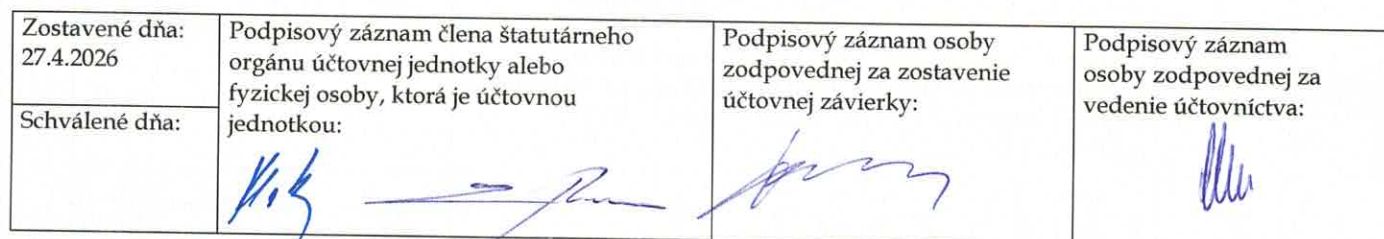 Zostavené dňa:
27.4.2026
Schválené dňa:
Podpisový záznam člena štatutárneho
orgánu účtovnej jednotky alebo
fyzickej osoby, ktorá je účtovnou
jednotkou:
Podpisový záznam osoby
zodpovednej za zostavenie
účtovnej závierky:
Podpisový záznam
osoby zodpovednej za
vedenie účtovníctva: